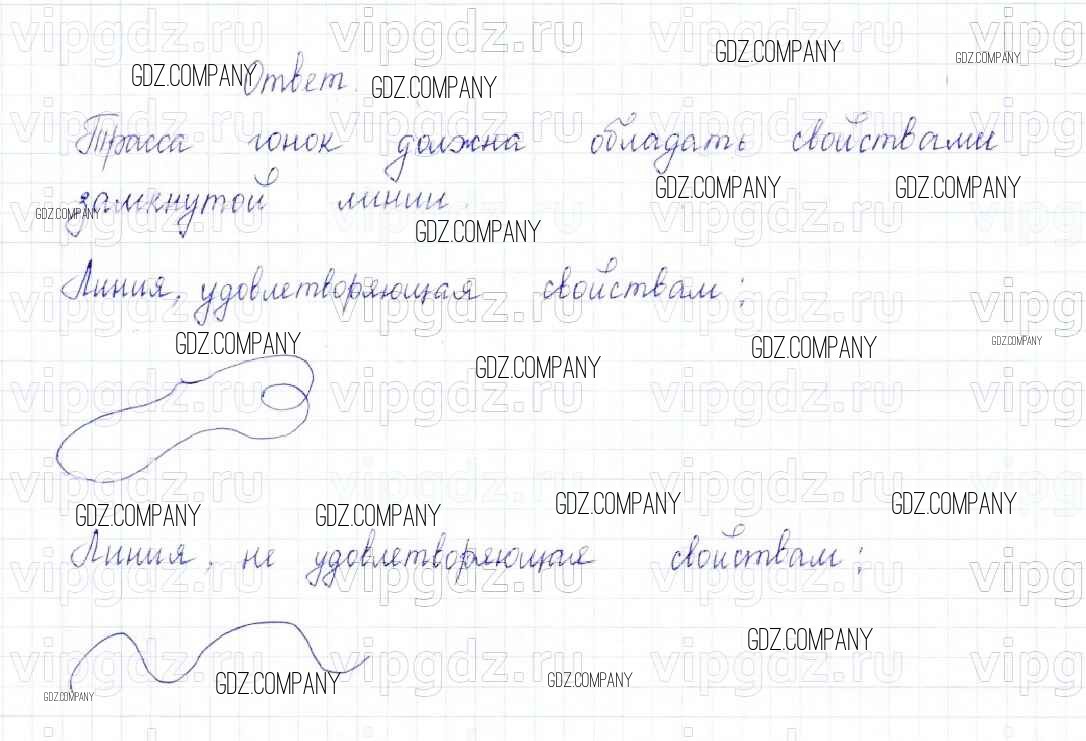 Ответ.
Трасса гонок должна обладать свойствами
замкнутой линии.
Линия, удовлетворяющая свойствам:
Линия, не удовлетворяющая свойствам:
vipgdz.ru
GDZ.COMPANY